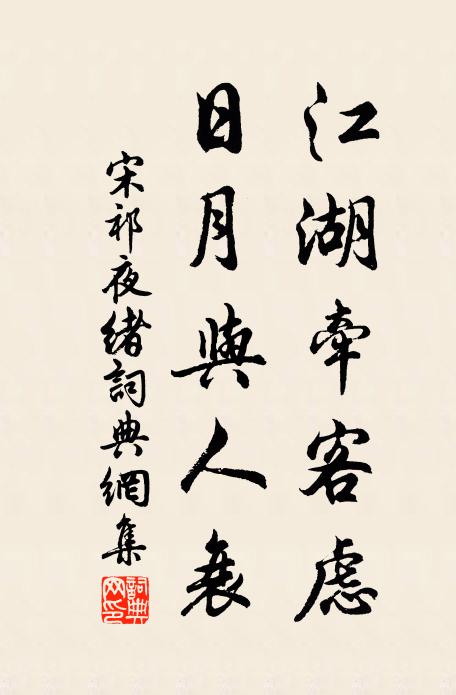 江湖牽客慮
日月與人衰
宋祁夜緒詞典網集
詞典
网印